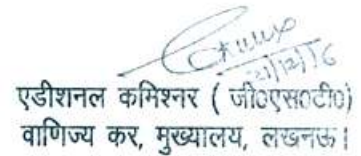 21/12/16
एडीशनल कमिश्नर ( जी०एस०टी०)
वाणिज्य कर, मुख्यालय, लखनऊ।